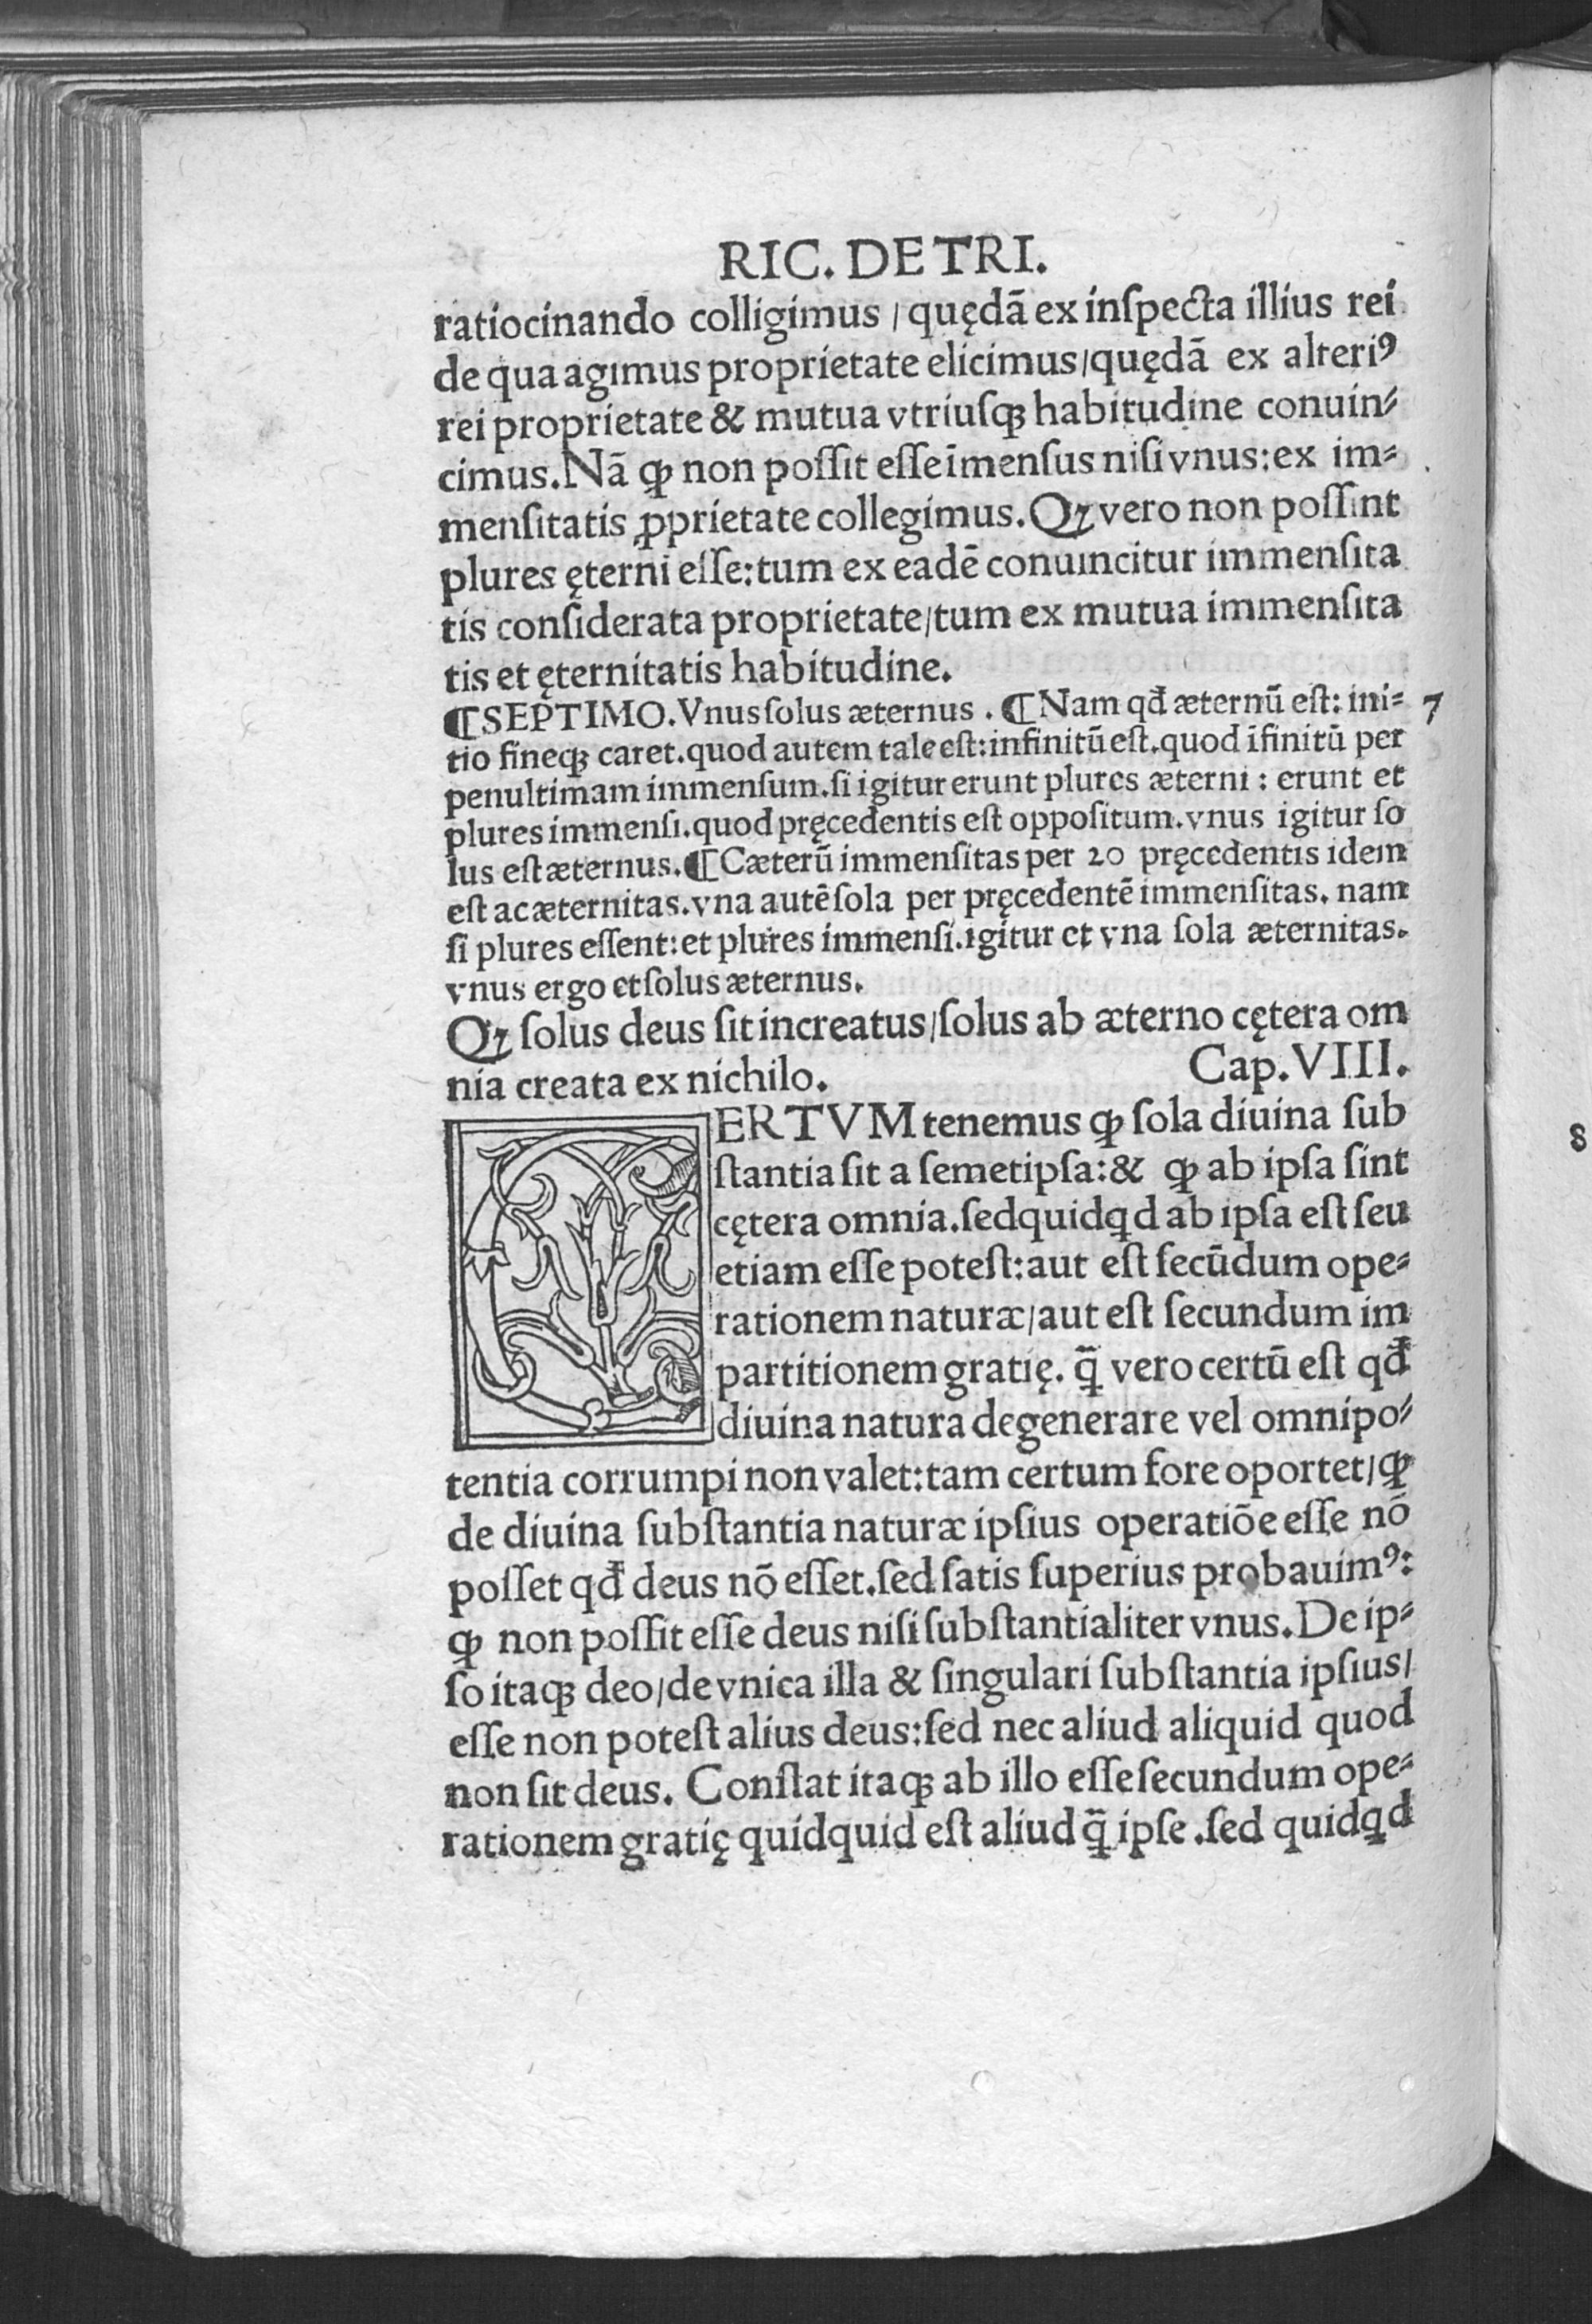 RIC. DE TRI.
ratiocinando colligimus / quędā ex inſpecta illius rei
de qua agimus proprietate elicimus/quędā ex alteriꝰ
rei proprietate & mutua vtriuſqꝫ habitudine conuin⸗
cimus. Nā ꝙ non poſſit eſſe īmenſus niſi vnus: ex im⸗
menſitatis ꝓprietate collegimus. Qꝫ vero non poſſint
plures ęterni eſſe: tum ex eadē conuincitur immenſita
tis conſiderata proprietate/tum ex mutua immenſita
tis et ęternitatis habitudine.
¶ SEPTIMO. Vnus ſolus æternus . ¶ Nam qđ æternū eſt: ini⸗ 7
tio fineqꝫ caret. quod autem tale eſt: infinitū eſt. quod īfinitū per
penultimam immenſum. ſi igitur erunt plures æterni : erunt et
plures immenſi. quod pręcedentis eſt oppoſitum. vnus igitur ſo
lus eſt æternus. ¶ Cæterū immenſitas per 20 pręcedentis idem
eſt ac æternitas. vna autē ſola per pręcedentē immenſitas. nam
ſi plures eſſent: et plures immenſi. igitur et vna ſola æternitas.
vnus ergo et ſolus æternus.
Qꝫ ſolus deus ſit increatus/ſolus ab æterno cętera om
nia creata ex nichilo. Cap. VIII.
CERTVM tenemus ꝙ ſola diuina ſub
ſtantia ſit a ſemetipſa: & ꝙ ab ipſa ſint
cętera omnia. ſed quidꝗd ab ipſa eſt ſeu
etiam eſſe poteſt: aut eſt ſecūdum ope⸗
rationem naturæ/aut eſt ſecundum im
partitionem gratię. ꝗ̄ vero certū eſt qđ
diuina natura degenerare vel omnipo⸗
tentia corrumpi non valet: tam certum fore oportet/ꝙ
de diuina ſubſtantia naturæ ipſius operatiōe eſſe nō
poſſet qđ deus nō eſſet. ſed ſatis ſuperius probauimꝰ:
ꝙ non poſſit eſſe deus niſi ſubſtantialiter vnus. De ip⸗
ſo itaqꝫ deo/de vnica illa & ſingulari ſubſtantia ipſius/
eſſe non poteſt alius deus: ſed nec aliud aliquid quod
non ſit deus. Conſtat itaqꝫ ab illo eſſe ſecundum ope⸗
rationem gratię quidquid eſt aliud ꝗ̄ ipſe . ſed quidꝗd
8